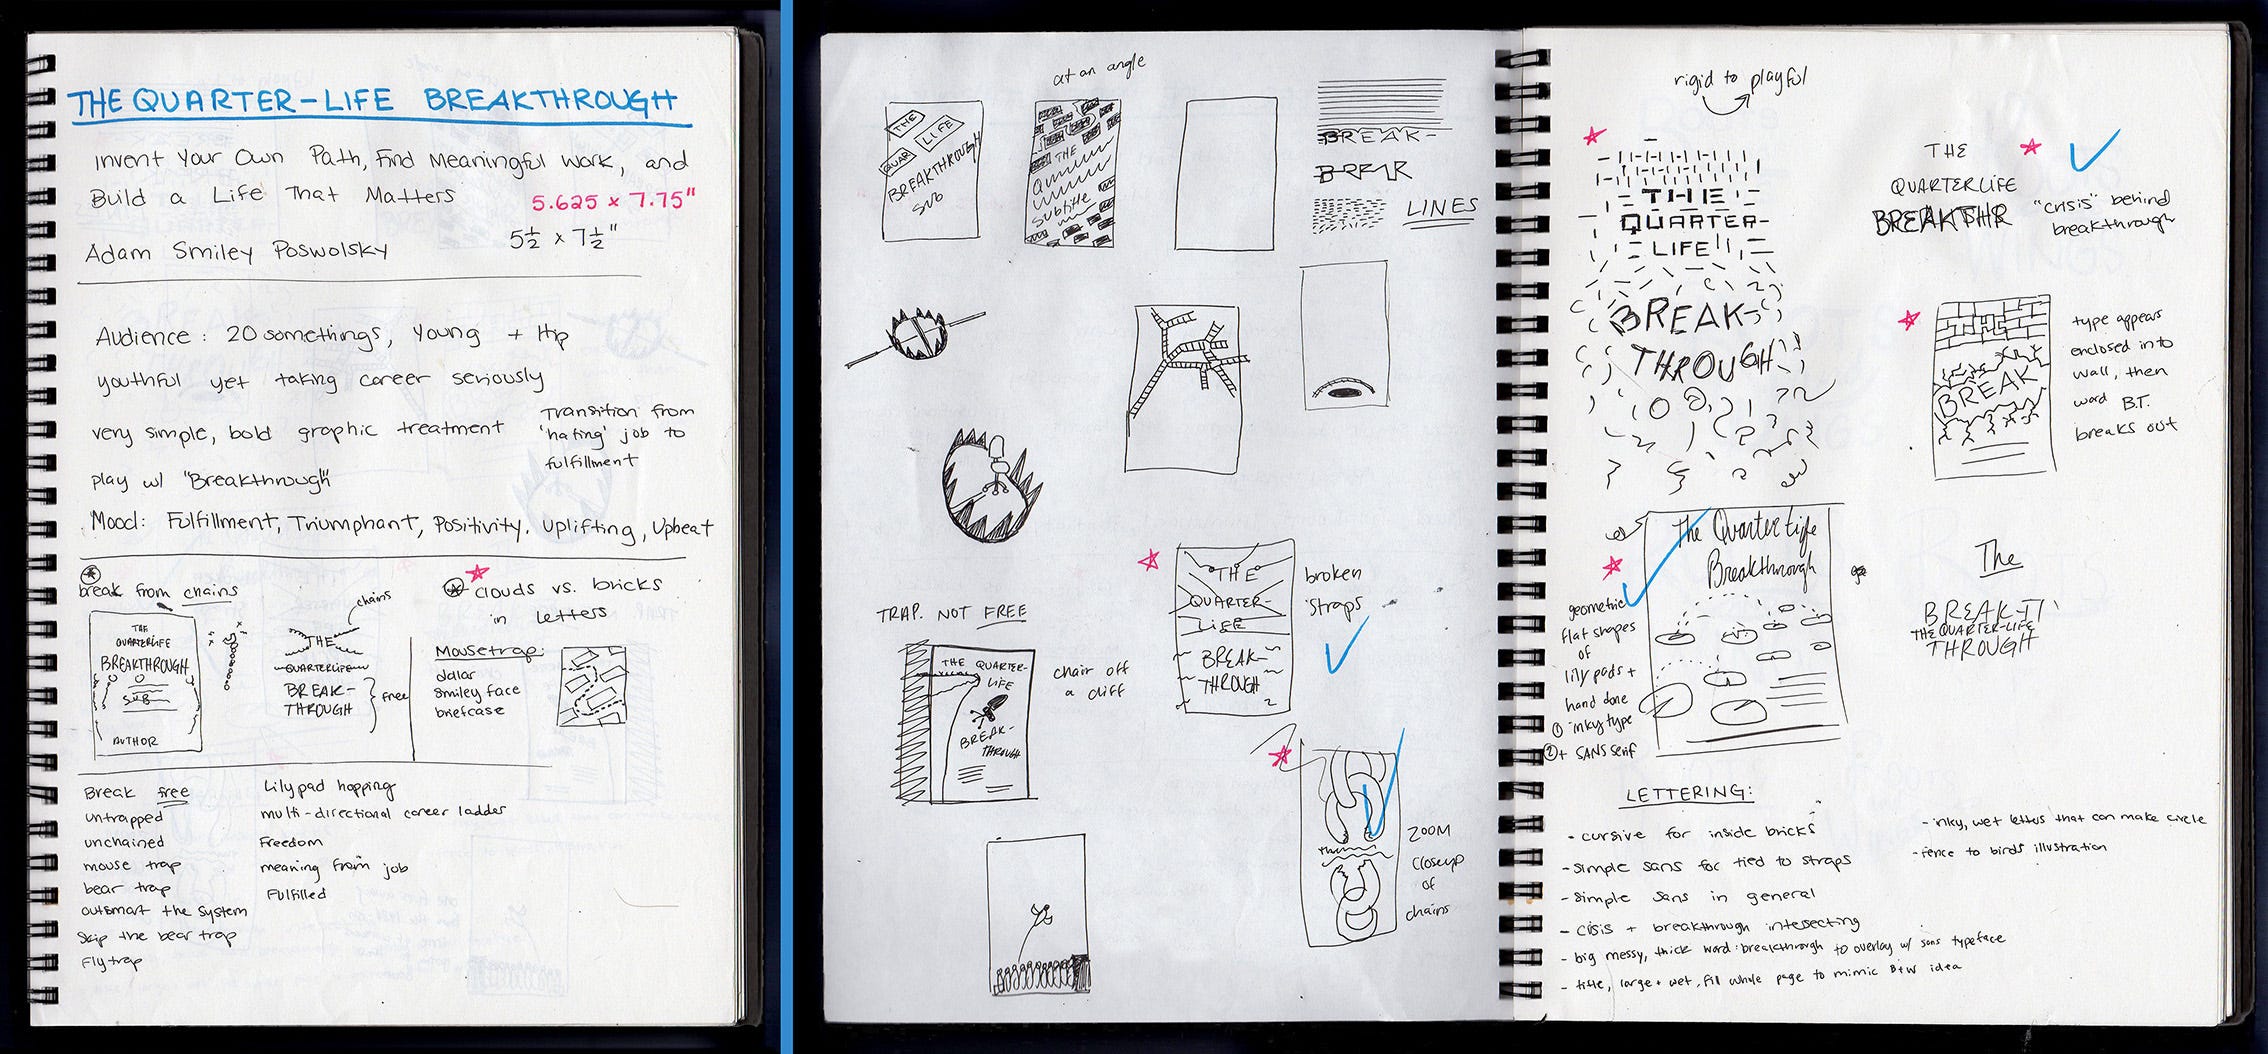 THE QUARTER-LIFE BREAKTHROUGH
Invent Your Own Path, Find Meaningful Work, and
Build a Life That Matters
5.625 x 7.75"
5½ x 7½"
Adam Smiley Poswolsky
Audience: 20somethings, Young + Hip
youthful yet taking career seriously
very simple, bold graphic treatment
Transition from
'hating' job to
fulfillment
play w/ "Breakthrough"
Mood: Fulfillment, Triumphant, Positivity, Uplifting, Upbeat
break from chains
THE
QUARTERLIFE
BREAKTHROUGH
SUB
AUTHOR
chains
THE
QUARTERLIFE
BREAK-
THROUGH
Free
clouds vs. bricks
in letters
Mousetrap:
dollar
smiley face
briefcase
Break free
untrapped
unchained
mouse trap
bear trap
outsmart the system
Skip the bear trap
Fly trap
Lilypad hopping
multi-directional career ladder
Freedom
meaning from job
Fulfilled
at an angle
THE
QUAR
LIFE
BREAKTHROUGH
SUB
THE
subtitle
BREAK-
BREAK
LINES
TRAP. NOT FREE
THE QUARTER-
LIFE
BREAK-
THROUGH
chair off
a cliff
THE
QUARTER-
LIFE
BREAK-
THROUGH
broken
straps
ZOOM
closeup
of
chains
rigid to playful
THE
QUARTER-
LIFE
BREAK-
THROUGH
THE
QUARTERLIFE
BREAKTHR
"crisis" behind
breakthrough
BREAK
type appears
enclosed into
wall, then
word B.T.
breaks out
The Quarter Life
Breakthrough
geometric
flat shapes
of
lily pads +
hand done
① inky type
② + SANS serif
The
BREAK-T
THE QUARTER-LIFE
THROUGH
LETTERING:
- cursive for inside bricks
- simple sans for tied to straps
- simple sans in general
- crisis + breakthrough intersecting
- big messy, thick word: breakthrough to overlay w/ sans typeface
- title, large + wet, fill whole page to mimic B+W idea
- inky, wet letters that can make circle
- fence to birds illustration